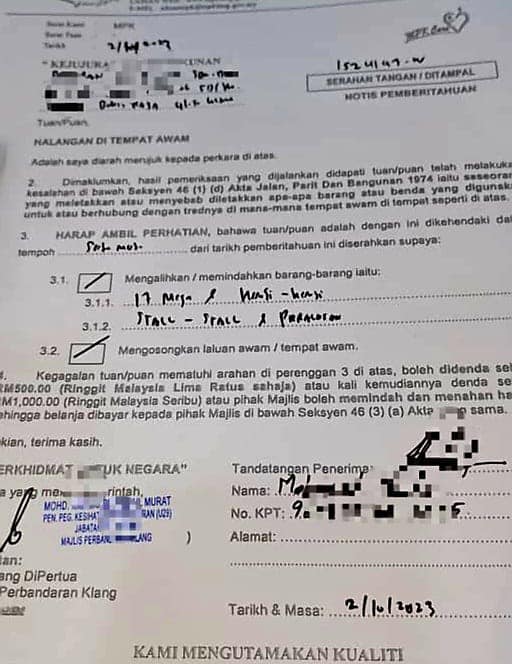 Tarikh 2/10/2023
1524147-W
"KEJURU CUNAN
SERAHAN TANGAN / DITAMPAL
NOTIS PEMBERITAHUAN
Tuan/Puan,
HALANGAN DI TEMPAT AWAM
Adalah saya diarah merujuk kepada perkara di atas.
2. Dimaklumkan, hasil pemeriksaan yang dijalankan didapati tuan/puan telah melakuka
kesalahan di bawah Seksyen 46 (1) (d) Akta Jalan, Parit Dan Bangunan 1974 iaitu seseoran
yang meletakkan atau menyebab diletakkan apa-apa barang atau benda yang digunaka
untuk atau berhubung dengan trednya di mana-mana tempat awam di tempat seperti di atas.
3. HARAP AMBIL PERHATIAN, bahawa tuan/puan adalah dengan ini dikehendaki dal
tempoh dari tarikh pemberitahuan ini diserahkan supaya:
3.1. Mengalihkan / memindahkan barang-barang iaitu:
3.1.1. 17 Meja & kerusi-kerusi
3.1.2. STALL - STALL & PERALATAN
3.2. Mengosongkan laluan awam / tempat awam.
4. Kegagalan tuan/puan mematuhi arahan di perenggan 3 di atas, boleh didenda sel
RM500.00 (Ringgit Malaysia Lima Ratus sahaja) atau kali kemudiannya denda se
RM1,000.00 (Ringgit Malaysia Seribu) atau pihak Majlis boleh memindah dan menahan ha
ehingga belanja dibayar kepada pihak Majlis di bawah Seksyen 46 (3) (a) Akta sama.
kian, terima kasih.
ERKHIDMAT UK NEGARA"
a yang me rintah,
MOHD. MURAT
PEN. PEG. KESIHAT RAN (U29)
JABATA
MAJLIS PERBAN LANG
)
an:
ang DiPertua
Perbandaran Klang
Tandatangan Penerima:
Nama:
No. KPT: 9
Alamat:
Tarikh & Masa: 2/10/2023
KAMI MENGUTAMAKAN KUALITI